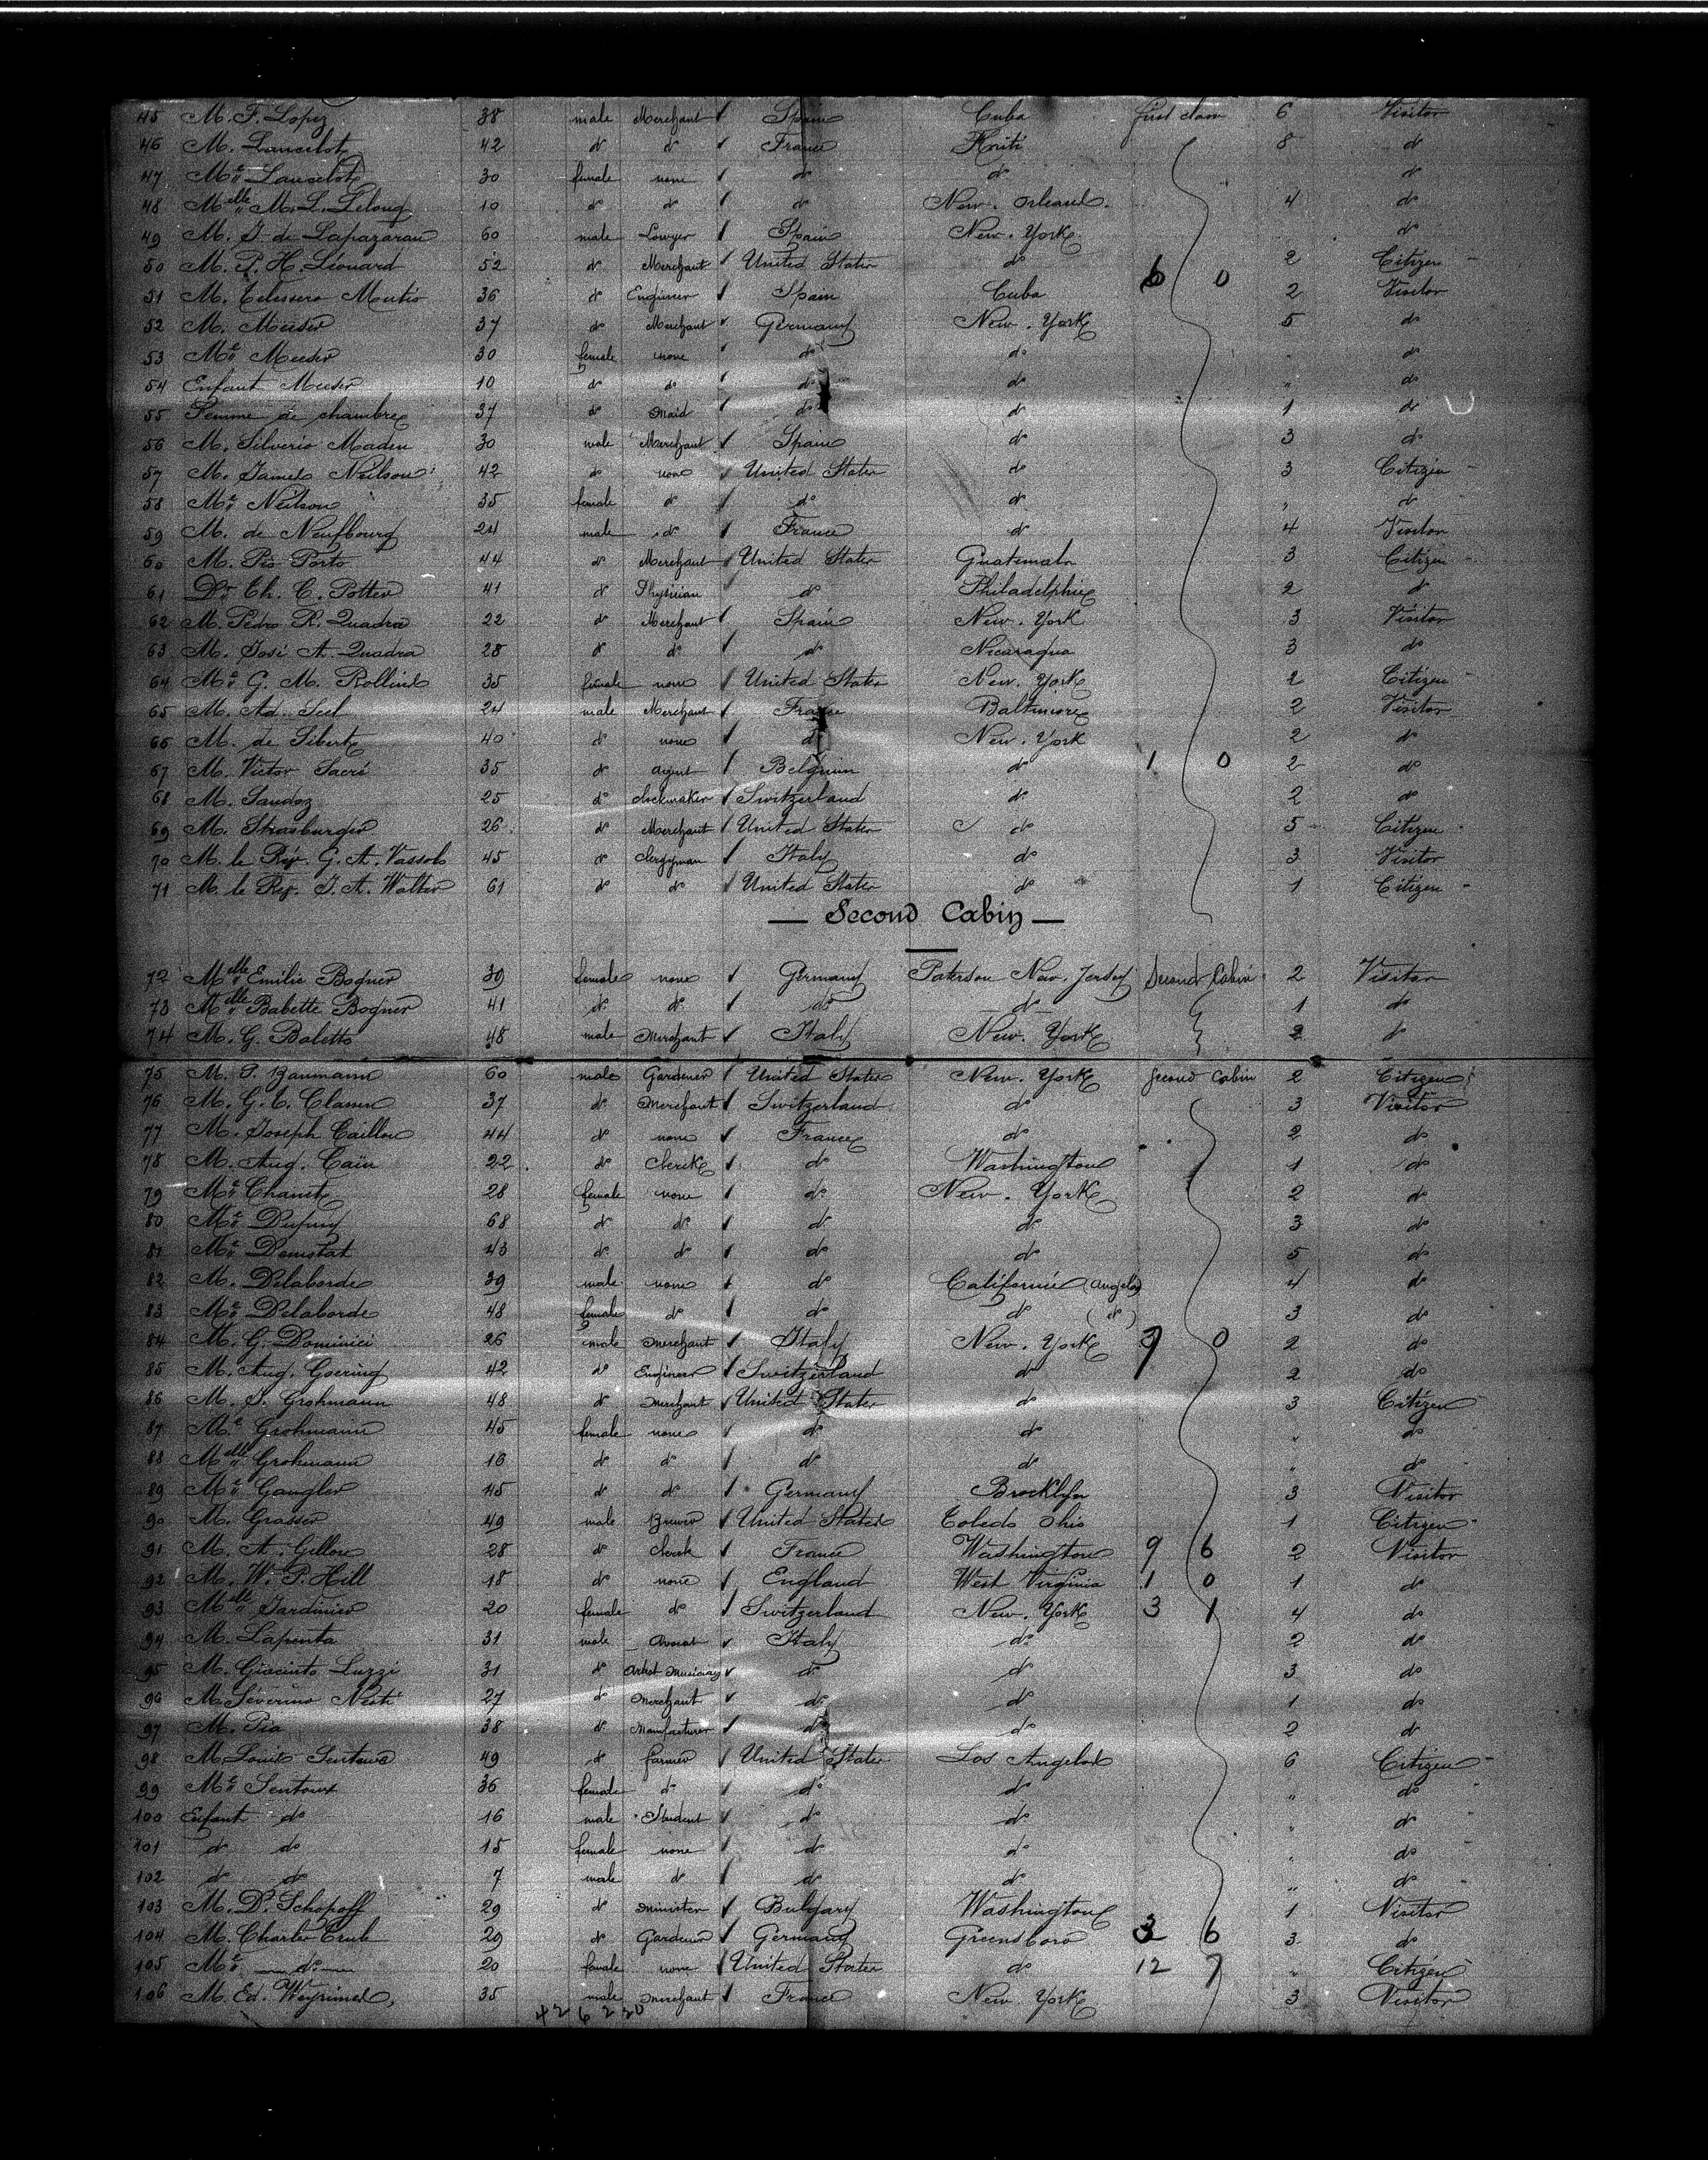 45 M. F. Lopez 38 male Merchant Spain Cuba first class 6 Visitor
46 M. Lancelot 42 do do France Haïti 8 do
47 Me Lancelot 30 female none do do do
48 Melle M. L. Lelong 10 do do do New. Orleans. 4 do
49 M. J. de Lapazaran 60 male Lawyer Spain New. York do
50 M. P. H. Léonard 52 do Merchant United States do 2 Citizen
6 0
51 M. Mutis 36 do Engineer Spain Cuba 2 Visitor
52 M. Meeser 37 do Merchant Germany New. York 5 do
53 Me Meeser 30 female none do do " do
54 Enfant Meeser 10 do do do do " do
55 Femme de chambre 37 do maid do do 1 do
56 M. Silverio Maden 30 male Merchant Spain do 3 do
57 M. James Neilson 42 do none United States do 3 Citizen
58 Me Neilson 35 female do do do " do
59 M. de Neufbourg 24 male do France do 4 Visitor
60 M. Pio Porto 44 do Merchant United States Guatemala 3 Citizen
61 Dr Ch. C. Potter 41 do Physician do Philadelphie 2 do
62 M. Pedro R. Quadra 22 do Merchant Spain New. York 3 Visitor
63 M. José A. Quadra 28 do do do Nicaragua 3 do
64 Me G. M. Rollins 35 female none United States New. York 2 Citizen
65 M. Ad. Seel 24 male Merchant France Baltimore 2 Visitor
66 M. de Sibert 40 do none do New. York 2 do
67 M. Victor Sacré 35 do agent Belgium do 1 0 2 do
68 M. Sandoz 25 do clockmaker Switzerland do 2 do
69 M. Strasburger 26 do Merchant United States do 5 Citizen
70 M. le Rév. G. A. Vassolo 45 do Clergyman Italy do 3 Visitor
71 M. le Rév. J. A. Walter 61 do do United States do 1 Citizen
— Second Cabin —
72 Melle Emilie Bogner 39 female none Germany Paterson New. Jersey Second Cabin 2 Visitor
73 Melle Babette Bogner 41 do do do do 1 do
74 M. G. Baletto 48 male Merchant Italy New. York 2 do
75 M. P. Baumann 60 male Gardener United States New. York Second Cabin 2 Citizen
76 M. G. C. Clasen 37 do Merchant Switzerland do 3 Visitor
77 M. Joseph Caillou 44 do none France do 2 do
78 M. Aug. Caïn 22 do Clerck do Washington 1 do
79 Me Chanet 28 female none do New. York 2 do
80 Me Dupuy 68 do do do do 3 do
81 Me Demstat 43 do do do do 5 do
82 M. Delaborde 39 male none do Californie (Angelos) 4 do
83 Me Delaborde 48 female do do do (do) 3 do
84 M. G. Dominici 26 male Merchant Italy New. York 7 0 2 do
85 M. Aug. Goering 42 do Engineer Switzerland do 2 do
86 M. J. Grohmann 48 do Merchant United States do 3 Citizen
87 Me Grohmann 45 female none do do " do
88 Melle Grohmann 18 do do do do " do
89 Me Gangler 45 do do Germany Brooklyn 3 Visitor
90 M. Grasser 49 male Brewer United States Toledo Ohio 1 Citizen
91 M. A. Gillou 28 do Clerck France Washington 9 6 2 Visitor
92 M. W. P. Hill 18 do none England West Virginia 1 0 1 do
93 Melle Jardinier 20 female do Switzerland New. York 3 1 4 do
94 M. Lapenta 31 male Avocat Italy do 2 do
95 M. Giacinto Luzzi 31 do Artist Musician do do 3 do
96 M Séverino Nesti 27 do Merchant do do 1 do
97 M. Pia 38 do Manufacturer do do 2 do
98 M Louis Sentous 49 do farmer United States Los Angelos 6 Citizen
99 Me Sentous 36 female do do do " do
100 Enfant do 16 male Student do do " do
101 do do 15 female none do do " do
102 do do 7 male do do do " do
103 M. D. Schopoff 29 do Minister Bulgary Washington 1 Visitor
104 M. Charles 29 do Gardener Germany Greensboro 3 6 3 do
105 Me — do — 20 female none United States do 12 7 " Citizen
106 M. Ed. 35 male Merchant France New. York 3 Visitor
426230